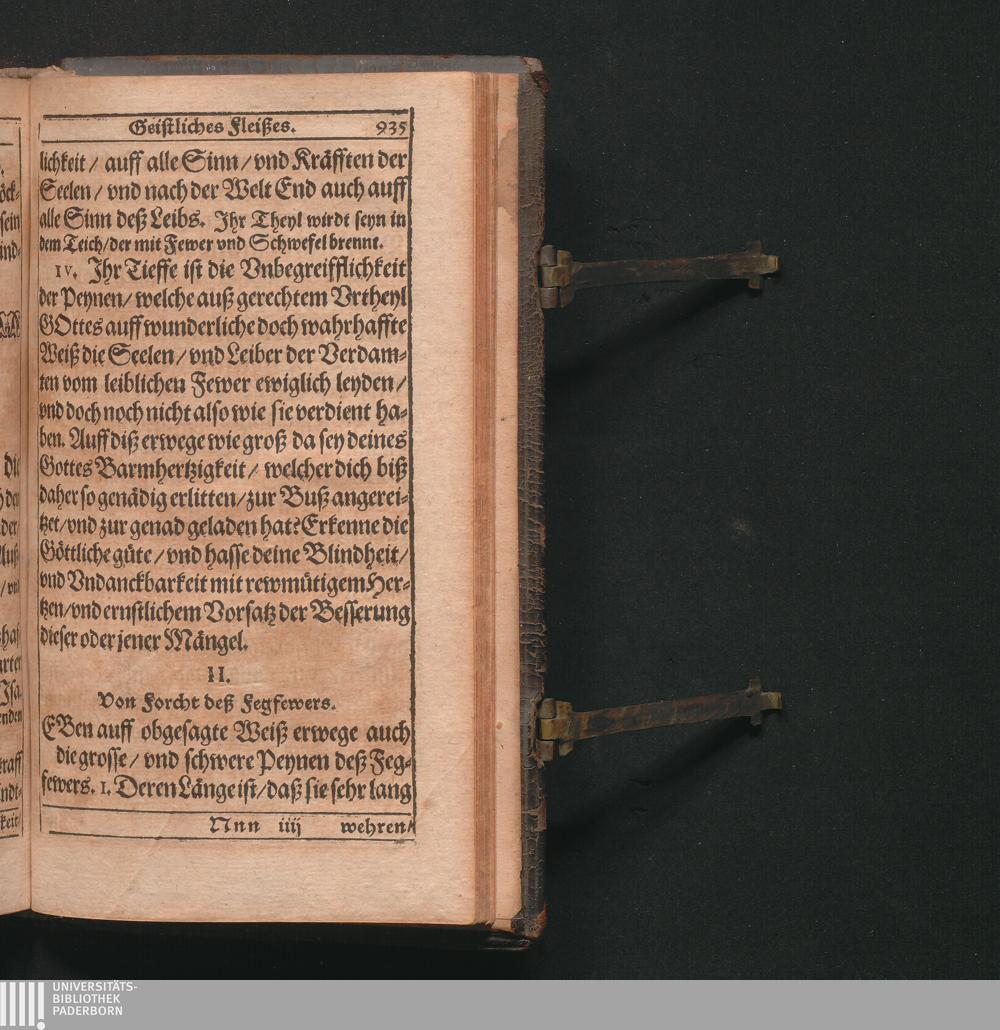 Geistliches Fleißes. 935
lichkeit / auff alle Sinn / vnd Kräfften der
Seelen / vnd nach der Welt End auch auff
alle Sinn deß Leibs. Ihr Theyl wirdt seyn in
dem Teich / der mit Fewer vnd Schwefel brennt.
IV. Ihr Tieffe ist die Vnbegreifflichkeit
der Peynen / welche auß gerechtem Vrtheyl
GOttes auff wunderliche doch wahrhaffte
Weiß die Seelen / vnd Leiber der Verdam-
ten vom leiblichen Fewer ewiglich leyden /
vnd doch noch nicht also wie sie verdient ha-
ben. Auff diß erwege wie groß da sey deines
Gottes Barmhertzigkeit / welcher dich biß
daher so genädig erlitten / zur Buß angerei-
tzet / vnd zur genad geladen hat? Erkenne die
Göttliche güte / vnd hasse deine Blindheit /
vnd Vndanckbarkeit mit rewmütigem Her-
tzen / vnd ernstlichem Vorsatz der Besserung
dieser oder jener Mängel.
II.
Von Forcht deß Fegfewers.
EBen auff obgesagte Weiß erwege auch
die grosse / vnd schwere Peynen deß Feg-
fewers. I. Deren Länge ist / daß sie sehr lang
Nnn iiij wehren /
UNIVERSITÄTS-
BIBLIOTHEK
PADERBORN